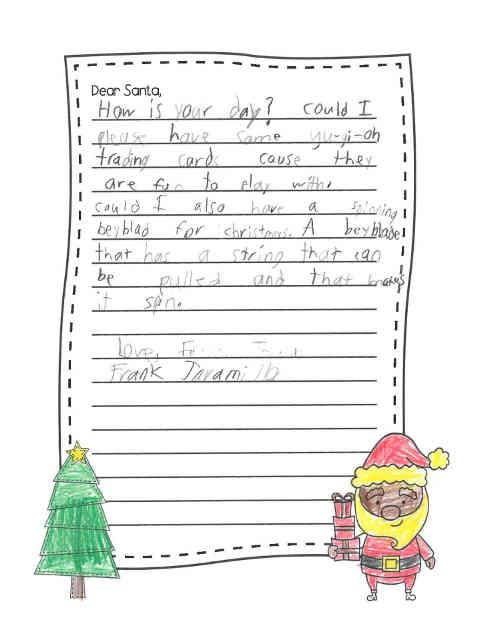 Dear Santa,
How is your day? Could I
please have some yu-ji-oh
trading cards cause they
are fun to play with.
could I also have a spinning
beyblad for christmas. A beyblade
that has a string that can
be pulled and that makes
it spin.
love,
Frank